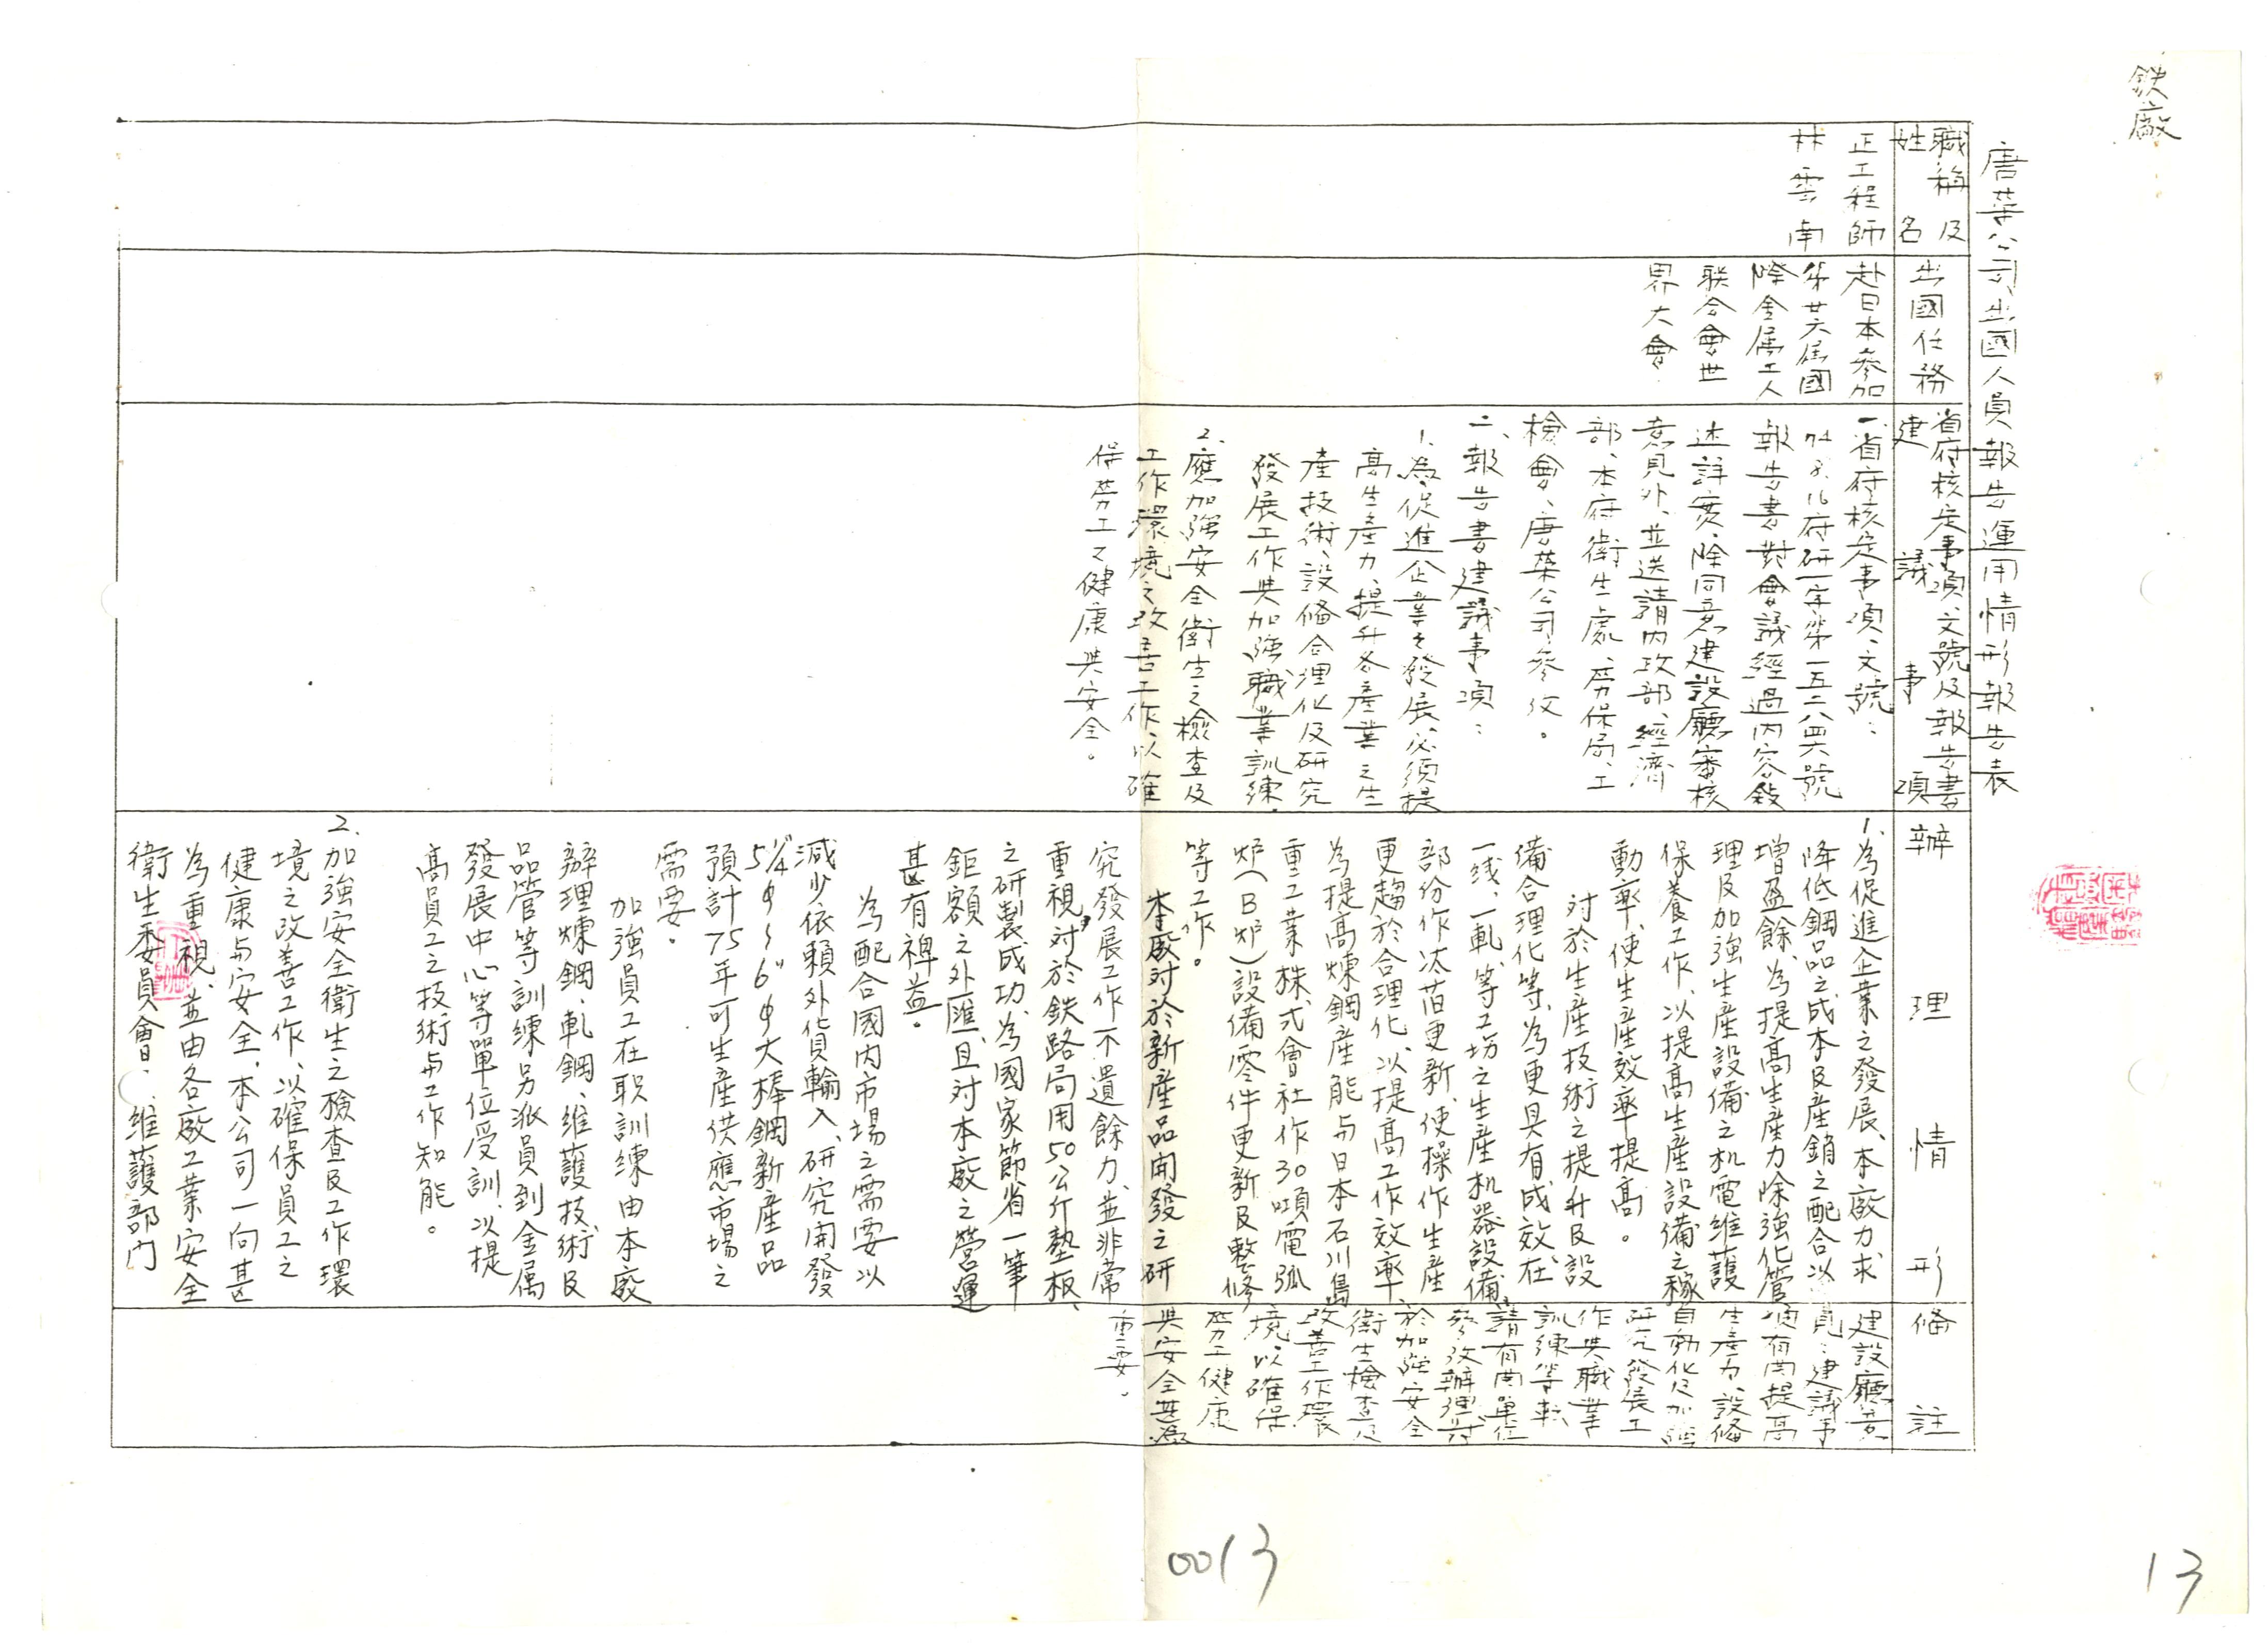 鉄廠
唐荣公司出國人員報告運用情形報告表
職稱及
姓名
出國任務
省府核定事項、文號及報告書
建議事項
辦理情形
備註
正工程師
林雲南
赴日本參加
第廿六届國
際金属工人
联合會世
界大會
一、省府核定事項、文號：
74.8.16府研一字第一五二八四六號
報告書對會議經過內容敍
述詳實、除同意建設廳審核
意見外、並送請內政部、經濟
部、本府衛生處、劳保局、工
檢會、唐荣公司參攷。
二、報告書建議事項：
1.為促進企業之發展、必須提
高生產力、提升各產業之生
產技術、設俻合理化及研究
發展工作與加强職業訓練.
2.應加强安全衛生之檢查及
工作環境之改善工作、以確
保劳工之健康與安全。
1.為促進企業之發展、本廠力求
降低鋼品之成本及産銷之配合以
增盈餘、為提高生産力除強化管
理及加強生産設備之机電維護
保養工作、以提高生産設備之稼
動率、使生産效率提高。
对於生産技術之提升及設
備合理化等、為更具有成效、在
一线、一軋、等工場之生産机器設備
部份作汰舊更新、使操作生産
更趨於合理化、以提高工作效率、
為提高煉鋼産能与日本石川島
重工業株式會社作30噸電弧
炉(B炉)設備零件更新及整修
等工作。
本廠对於新産品開發之研
究發展工作不遺餘力、並非常
重視、对於鉄路局用50公斤墊板、
之研製成功、為國家節省一筆
鉅額之外匯、且对本廠之營運
甚有裨益。
為配合國内市場之需要以
減少依賴外貨輸入、研究開發
5¼"φ～6"φ大棒鋼新産品
預計75年可生産供應市場之
需要。
加強員工在职訓練由本廠
辦理煉鋼、軋鋼、維護技術及
品管等訓練另派員到金属
發展中心等單位受訓、以提
高員工之技術与工作知能。
2.加強安全衛生之檢查及工作環
境之改善工作、以確保員工之
健康与安全、本公司一向甚
為重視、並由各廠工業安全
衛生委員會、維護部門
建設廳意
見：建議事
項有関提高
生產力、設俻
自動化及加强
研究發展工
作與職業
訓練等、轉
請有関單位
參攷辦理、对
於加强安全
衛生檢查及
改善工作環
境、以確保
劳工健康
與安全甚為
重要。
0013
13